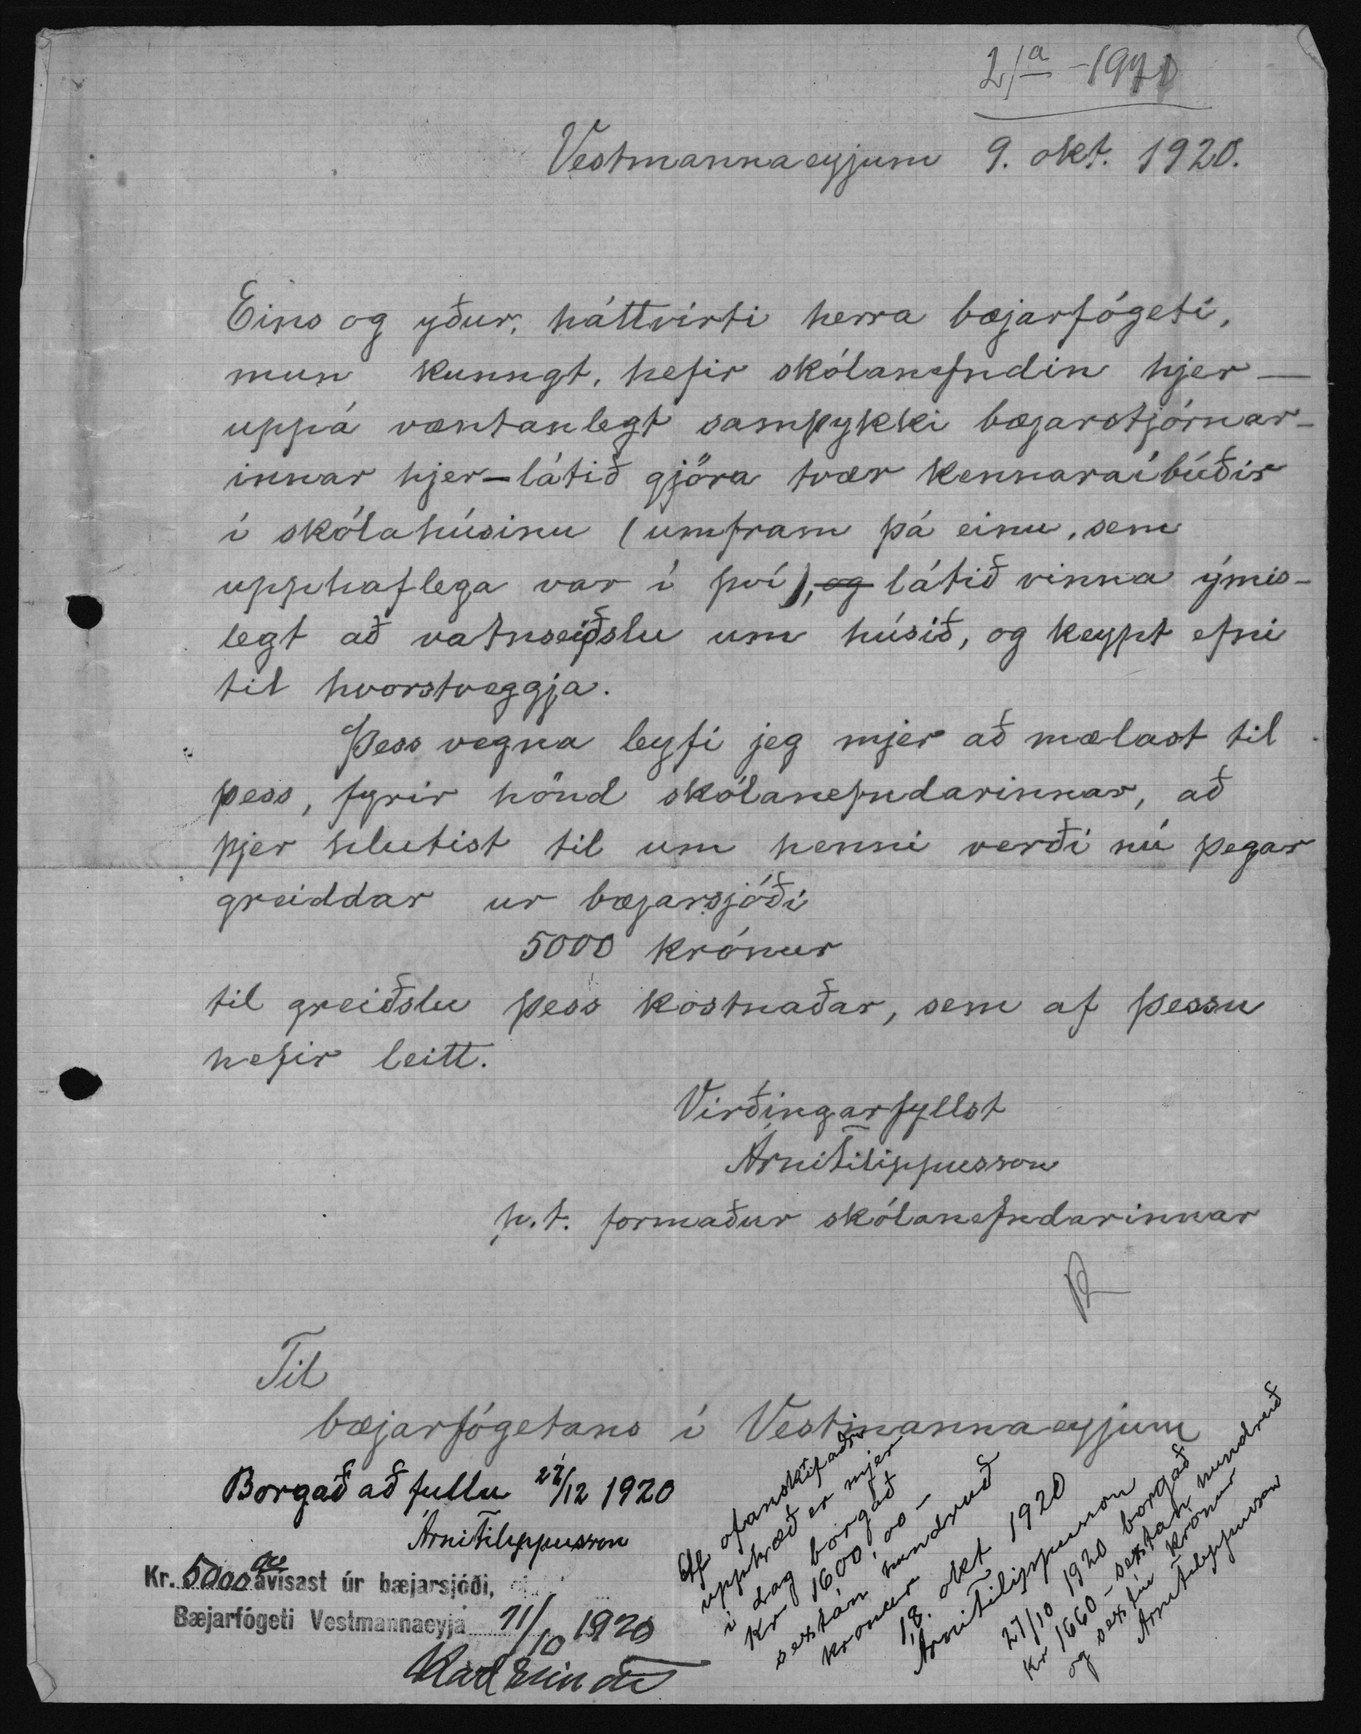 2/a - 1920
Vestmannaeyjum 9. okt. 1920.
Eins og yður, háttvirti herra bæjarfógeti,
mun kunngt, hefir skólanefndin hjer —
uppá væntanlegt samþykki bæjarstjórnar-
innar hjer — látið gjöra tvær kennaraíbúðir
í skólahúsinu (umfram þá einu, sem
upphaflega var í því), og látið vinna ýmis-
legt að vatnseiðslu um húsið, og keypt efni
til hvorstveggja.
Þess vegna leyfi jeg mjer að mælast til
þess, fyrir hönd skólanefndarinnar, að
þjer hlutist til um henni verði nú þegar
greiddar ur bæjarsjóði
5000 krónur
til greiðslu þess kostnaðar, sem af þessu
hefir leitt.
Virðingarfyllst
Árni Filippusson
p.t. formaður skólanefndarinnar
Til
bæjarfógetans í Vestmannaeyjum
Borgað að fullu 27/12 1920
Árni Filippusson
Kr. 5000 00 ávísast úr bæjarsjóði,
Bæjarfógeti Vestmannaeyja 11/10 1920
Karl Einarsson
Af ofanskrifaðri
upphæð er mjer
í dag borgað
Kr 1600,00 —
sextán hundruð
krónur
18. okt 1920
Árni Filippusson
27/10 1920 borgað
Kr 1660 - sextán hundruð
og sextíu krónur
Árni Filippusson